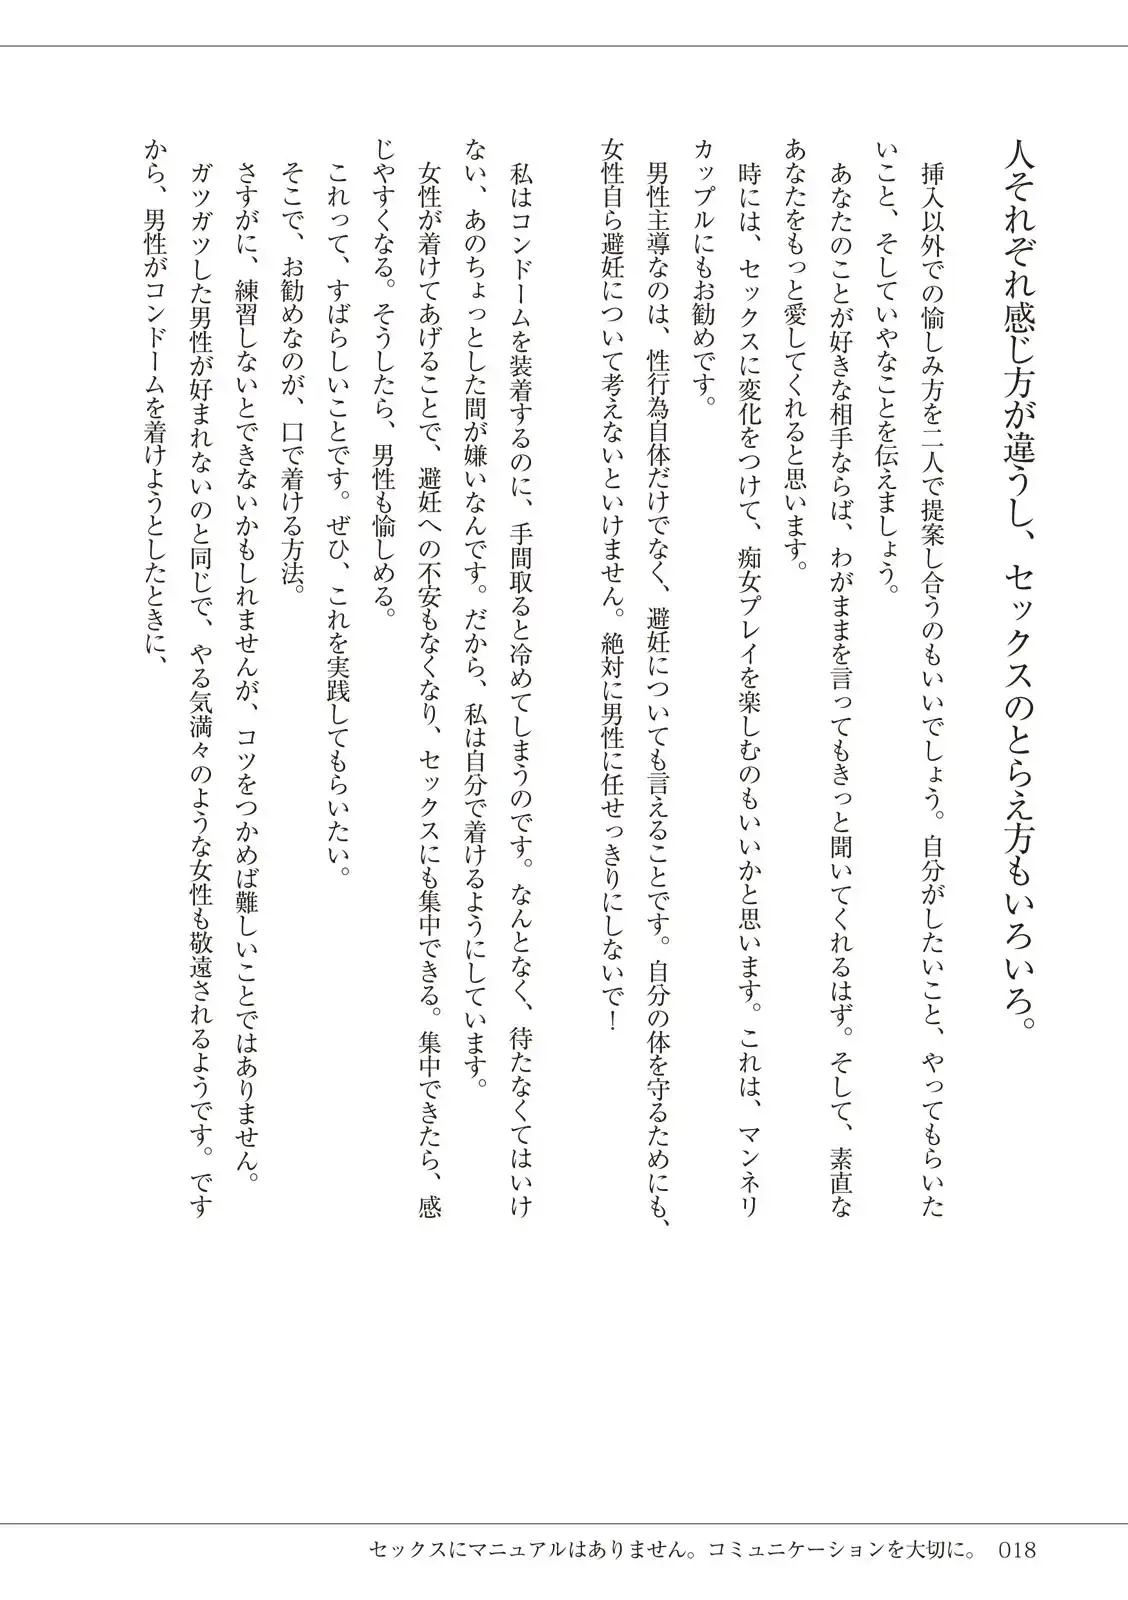 人それぞれ感じ方が違うし、セックスのとらえ方もいろいろ。
挿入以外での愉しみ方を二人で提案し合うのもいいでしょう。自分がしたいこと、やってもらいた
いこと、そしていやなことを伝えましょう。
あなたのことが好きな相手ならば、わがままを言ってもきっと聞いてくれるはず。そして、素直な
あなたをもっと愛してくれると思います。
時には、セックスに変化をつけて、痴女プレイを楽しむのもいいかと思います。これは、マンネリ
カップルにもお勧めです。
男性主導なのは、性行為自体だけでなく、避妊についても言えることです。自分の体を守るためにも、
女性自ら避妊について考えないといけません。絶対に男性に任せっきりにしないで！
私はコンドームを装着するのに、手間取ると冷めてしまうのです。なんとなく、待たなくてはいけ
ない、あのちょっとした間が嫌いなんです。だから、私は自分で着けるようにしています。
女性が着けてあげることで、避妊への不安もなくなり、セックスにも集中できる。集中できたら、感
じやすくなる。そうしたら、男性も愉しめる。
これって、すばらしいことです。ぜひ、これを実践してもらいたい。
そこで、お勧めなのが、口で着ける方法。
さすがに、練習しないとできないかもしれませんが、コツをつかめば難しいことではありません。
ガツガツした男性が好まれないのと同じで、やる気満々のような女性も敬遠されるようです。です
から、男性がコンドームを着けようとしたときに、
セックスにマニュアルはありません。コミュニケーションを大切に。 018